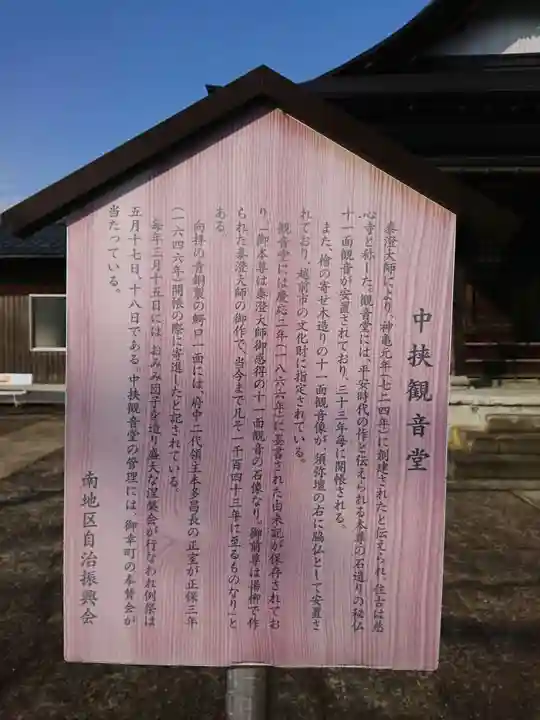 中挟観音堂
泰澄大師により、神亀元年(七二四年)に創建されたと伝えられ、往古は慈
心寺と称した。観音堂には、平安時代の作と伝えられる本尊の石造りの秘仏
十一面観音が安置されており、三十三年毎に開帳される。
また、檜の寄せ木造りの十一面観音像が、須弥壇の右に脇仏として安置さ
れており、越前市の文化財に指定されている。
観音堂には慶応二年(一八六六年)に墨書された由来記が保存されてお
り「御本尊は泰澄大師御感得の十一面観音の石像なり。御前尊は湯柳で作
られた泰澄大師の御作で、当今まで凡そ一千百四十三年に至るものなり」と
ある。
向拝の青銅製の鰐口一面には、府中二代領主本多昌長の正室が正保三年
(一六四六年)開帳の際に寄進したと記されている。
毎年三月十五日には、おみみ団子を造り盛大な涅槃会が行なわれ例祭は
五月十七日、十八日である。中挟観音堂の管理には、御幸町の奉賛会が
当たっている。
南地区自治振興会